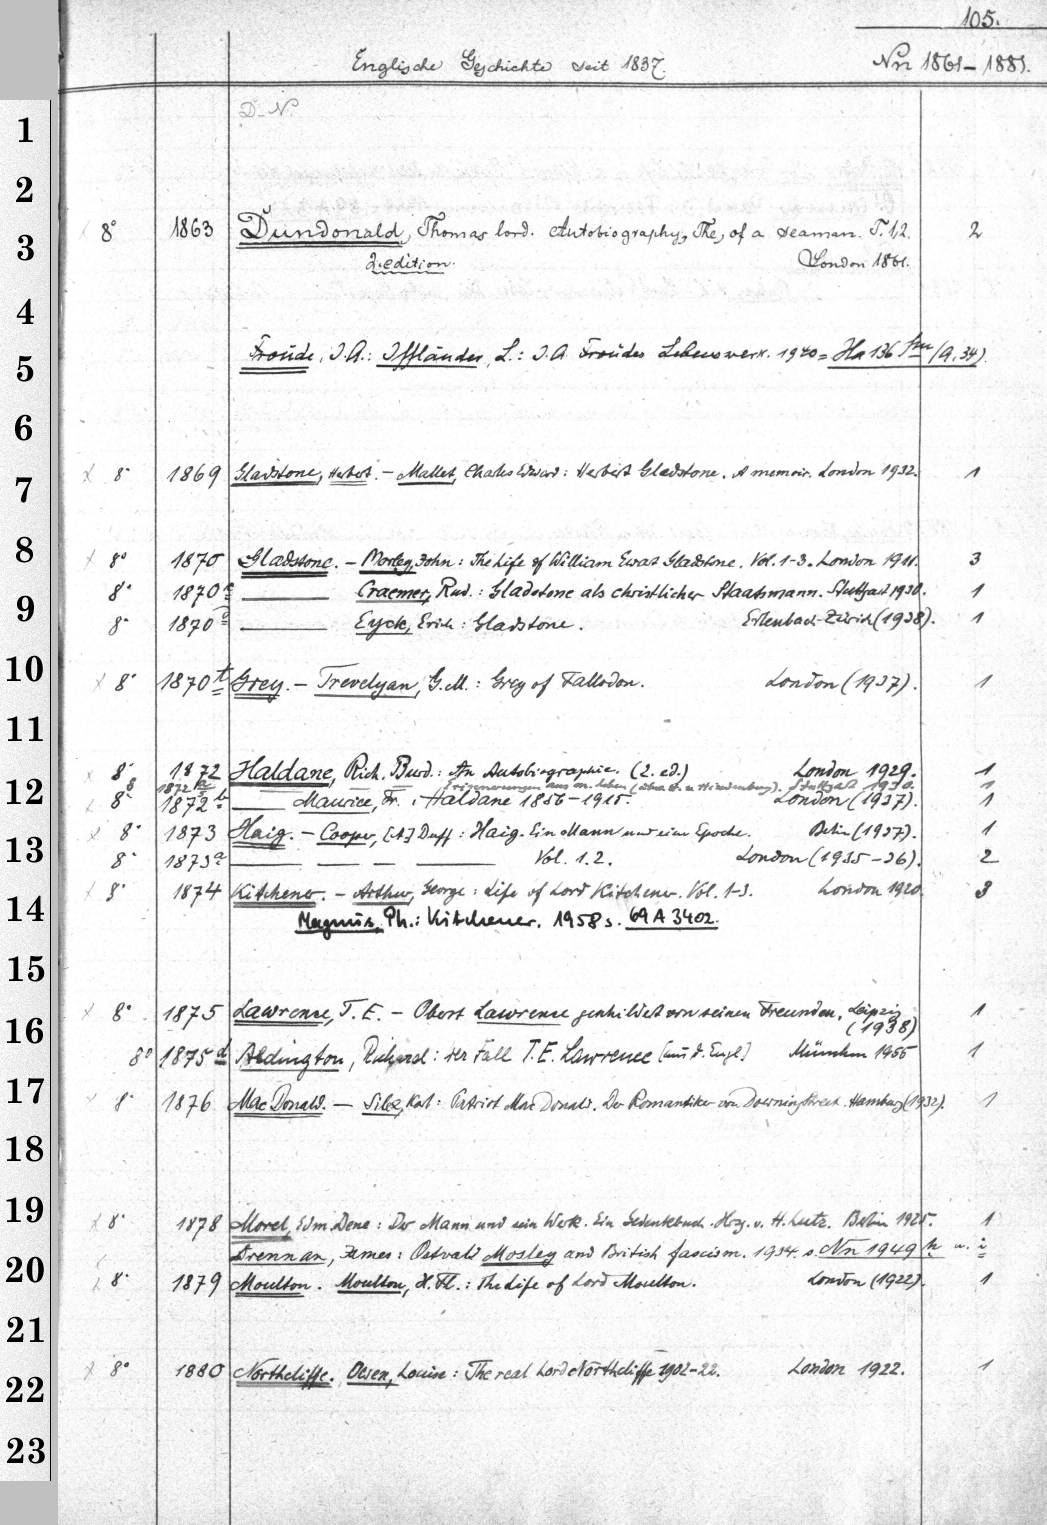 105.
Englische Geschichte seit 1837. Nn 1861-1881.
D-N.
1
2
8° 1863 Dundonald, Thomas lord. Autobiography, The, of a seaman. T. 1,2. 2
3
2. edition. London 1861.
4
Froude, J.A.: Iffländer, L.: J.A. Froudes Lebenswerk. 1940 = Ha 136 (9,34).
5
6
x 8° 1869 Gladstone, Herbert. - Mallet, Charles Edward: Herbert Gladstone. A memoir. London 1932. 1
7
8
x 8° 1870 Gladstone. - Morley, John: The Life of William Ewart Gladstone. Vol. 1-3. London 1911. 3
8° 1870 Craemer, Rud.: Gladstone als christlicher Staatsmann. Stuttgart 1930. 1
9
8° 1870 Eyck, Erich: Gladstone. Erlenbach-Zürich (1938). 1
10
x 8° 1870 t Grey. - Trevelyan, G.M.: Grey of Fallodon. London (1937). 1
11
x 8° 1872 Haldane, Rich. Burd.: An Autobiographie. (2. ed.) London 1929. 1
8 1872 Erinnerungen aus m. Leben Stuttgart 1930. 1
12
8° 1872 b Maurice, Fr.: Haldane 1856-1915. London (1937). 1
x 8° 1873 Haig. - Cooper, [A.] Duff: Haig. Ein Mann und eine Epoche. Berlin (1937). 1
13
8° 1873 a Vol. 1.2. London (1935-36). 2
x 8° 1874 Kitchener. - Arthur, George: Life of Lord Kitchener. Vol. 1-3. London 1920. 3
14
Magnus, Ph.: Kitchener. 1958 s. 69 A 3402.
15
x 8° 1875 Lawrence, T. E. - Oberst Lawrence geschildert von seinen Freunden. Leipzig 1
16
(1938)
8° 1875 d Aldington, Richard: der Fall T. E. Lawrence [aus d. Engl.] München 1955 1
17
x 8° 1876 MacDonald. - Silex, Karl: Patriot MacDonald. Der Romantiker von Downing Street. Hamburg (1932). 1
18
19
x 8° 1878 Morel, Edm. Dene: Der Mann und sein Werk. Ein Gedenkbuch. Hrsg. v. H. Lutz. Berlin 1925. 1
Drennan, James: Oswald Mosley and British fascism. 1934. s. Nn 1949 h u. i
20
8° 1879 Moulton. Moulton, H. Fl.: The Life of Lord Moulton. London (1922). 1
21
x 8° 1880 Northcliffe. Owen, Louise: The real Lord Northcliffe 1902-22. London 1922. 1
22
23